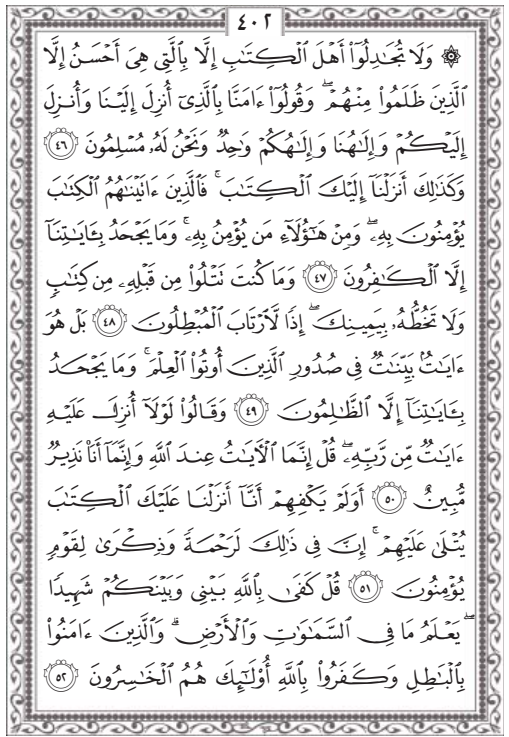 ٤٠٢
۞ وَلَا تُجَٰدِلُوٓا۟ أَهْلَ ٱلْكِتَٰبِ إِلَّا بِٱلَّتِى هِىَ أَحْسَنُ إِلَّا
ٱلَّذِينَ ظَلَمُوا۟ مِنْهُمْ ۖ وَقُولُوٓا۟ ءَامَنَّا بِٱلَّذِىٓ أُنزِلَ إِلَيْنَا وَأُنزِلَ
إِلَيْكُمْ وَإِلَٰهُنَا وَإِلَٰهُكُمْ وَٰحِدٌ وَنَحْنُ لَهُۥ مُسْلِمُونَ ٤٦
وَكَذَٰلِكَ أَنزَلْنَآ إِلَيْكَ ٱلْكِتَٰبَ ۚ فَٱلَّذِينَ ءَاتَيْنَٰهُمُ ٱلْكِتَٰبَ
يُؤْمِنُونَ بِهِۦ ۖ وَمِنْ هَٰٓؤُلَآءِ مَن يُؤْمِنُ بِهِۦ ۚ وَمَا يَجْحَدُ بِـَٔايَٰتِنَآ
إِلَّا ٱلْكَٰفِرُونَ ٤٧ وَمَا كُنتَ تَتْلُوا۟ مِن قَبْلِهِۦ مِن كِتَٰبٍ
وَلَا تَخُطُّهُۥ بِيَمِينِكَ ۖ إِذًا لَّٱرْتَابَ ٱلْمُبْطِلُونَ ٤٨ بَلْ هُوَ
ءَايَٰتٌۢ بَيِّنَٰتٌ فِى صُدُورِ ٱلَّذِينَ أُوتُوا۟ ٱلْعِلْمَ ۚ وَمَا يَجْحَدُ
بِـَٔايَٰتِنَآ إِلَّا ٱلظَّٰلِمُونَ ٤٩ وَقَالُوا۟ لَوْلَآ أُنزِلَ عَلَيْهِ
ءَايَٰتٌ مِّن رَّبِّهِۦ ۖ قُلْ إِنَّمَا ٱلْءَايَٰتُ عِندَ ٱللَّهِ وَإِنَّمَآ أَنَا۠ نَذِيرٌ
مُّبِينٌ ٥٠ أَوَلَمْ يَكْفِهِمْ أَنَّآ أَنزَلْنَا عَلَيْكَ ٱلْكِتَٰبَ
يُتْلَىٰ عَلَيْهِمْ ۚ إِنَّ فِى ذَٰلِكَ لَرَحْمَةً وَذِكْرَىٰ لِقَوْمٍ
يُؤْمِنُونَ ٥١ قُلْ كَفَىٰ بِٱللَّهِ بَيْنِى وَبَيْنَكُمْ شَهِيدًا
ۖ يَعْلَمُ مَا فِى ٱلسَّمَٰوَٰتِ وَٱلْأَرْضِ ۗ وَٱلَّذِينَ ءَامَنُوا۟
بِٱلْبَٰطِلِ وَكَفَرُوا۟ بِٱللَّهِ أُو۟لَٰٓئِكَ هُمُ ٱلْخَٰسِرُونَ ٥٢